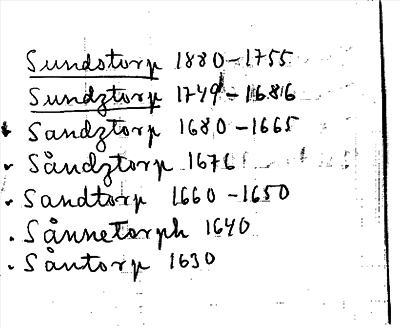 Sundstorp 1880-1755
Sundztorp 1749-1686
Sandztorp 1680-1665
Såndztorp 1676
Sandtorp 1660-1650
Sånnetorph 1640
Såntorp 1630